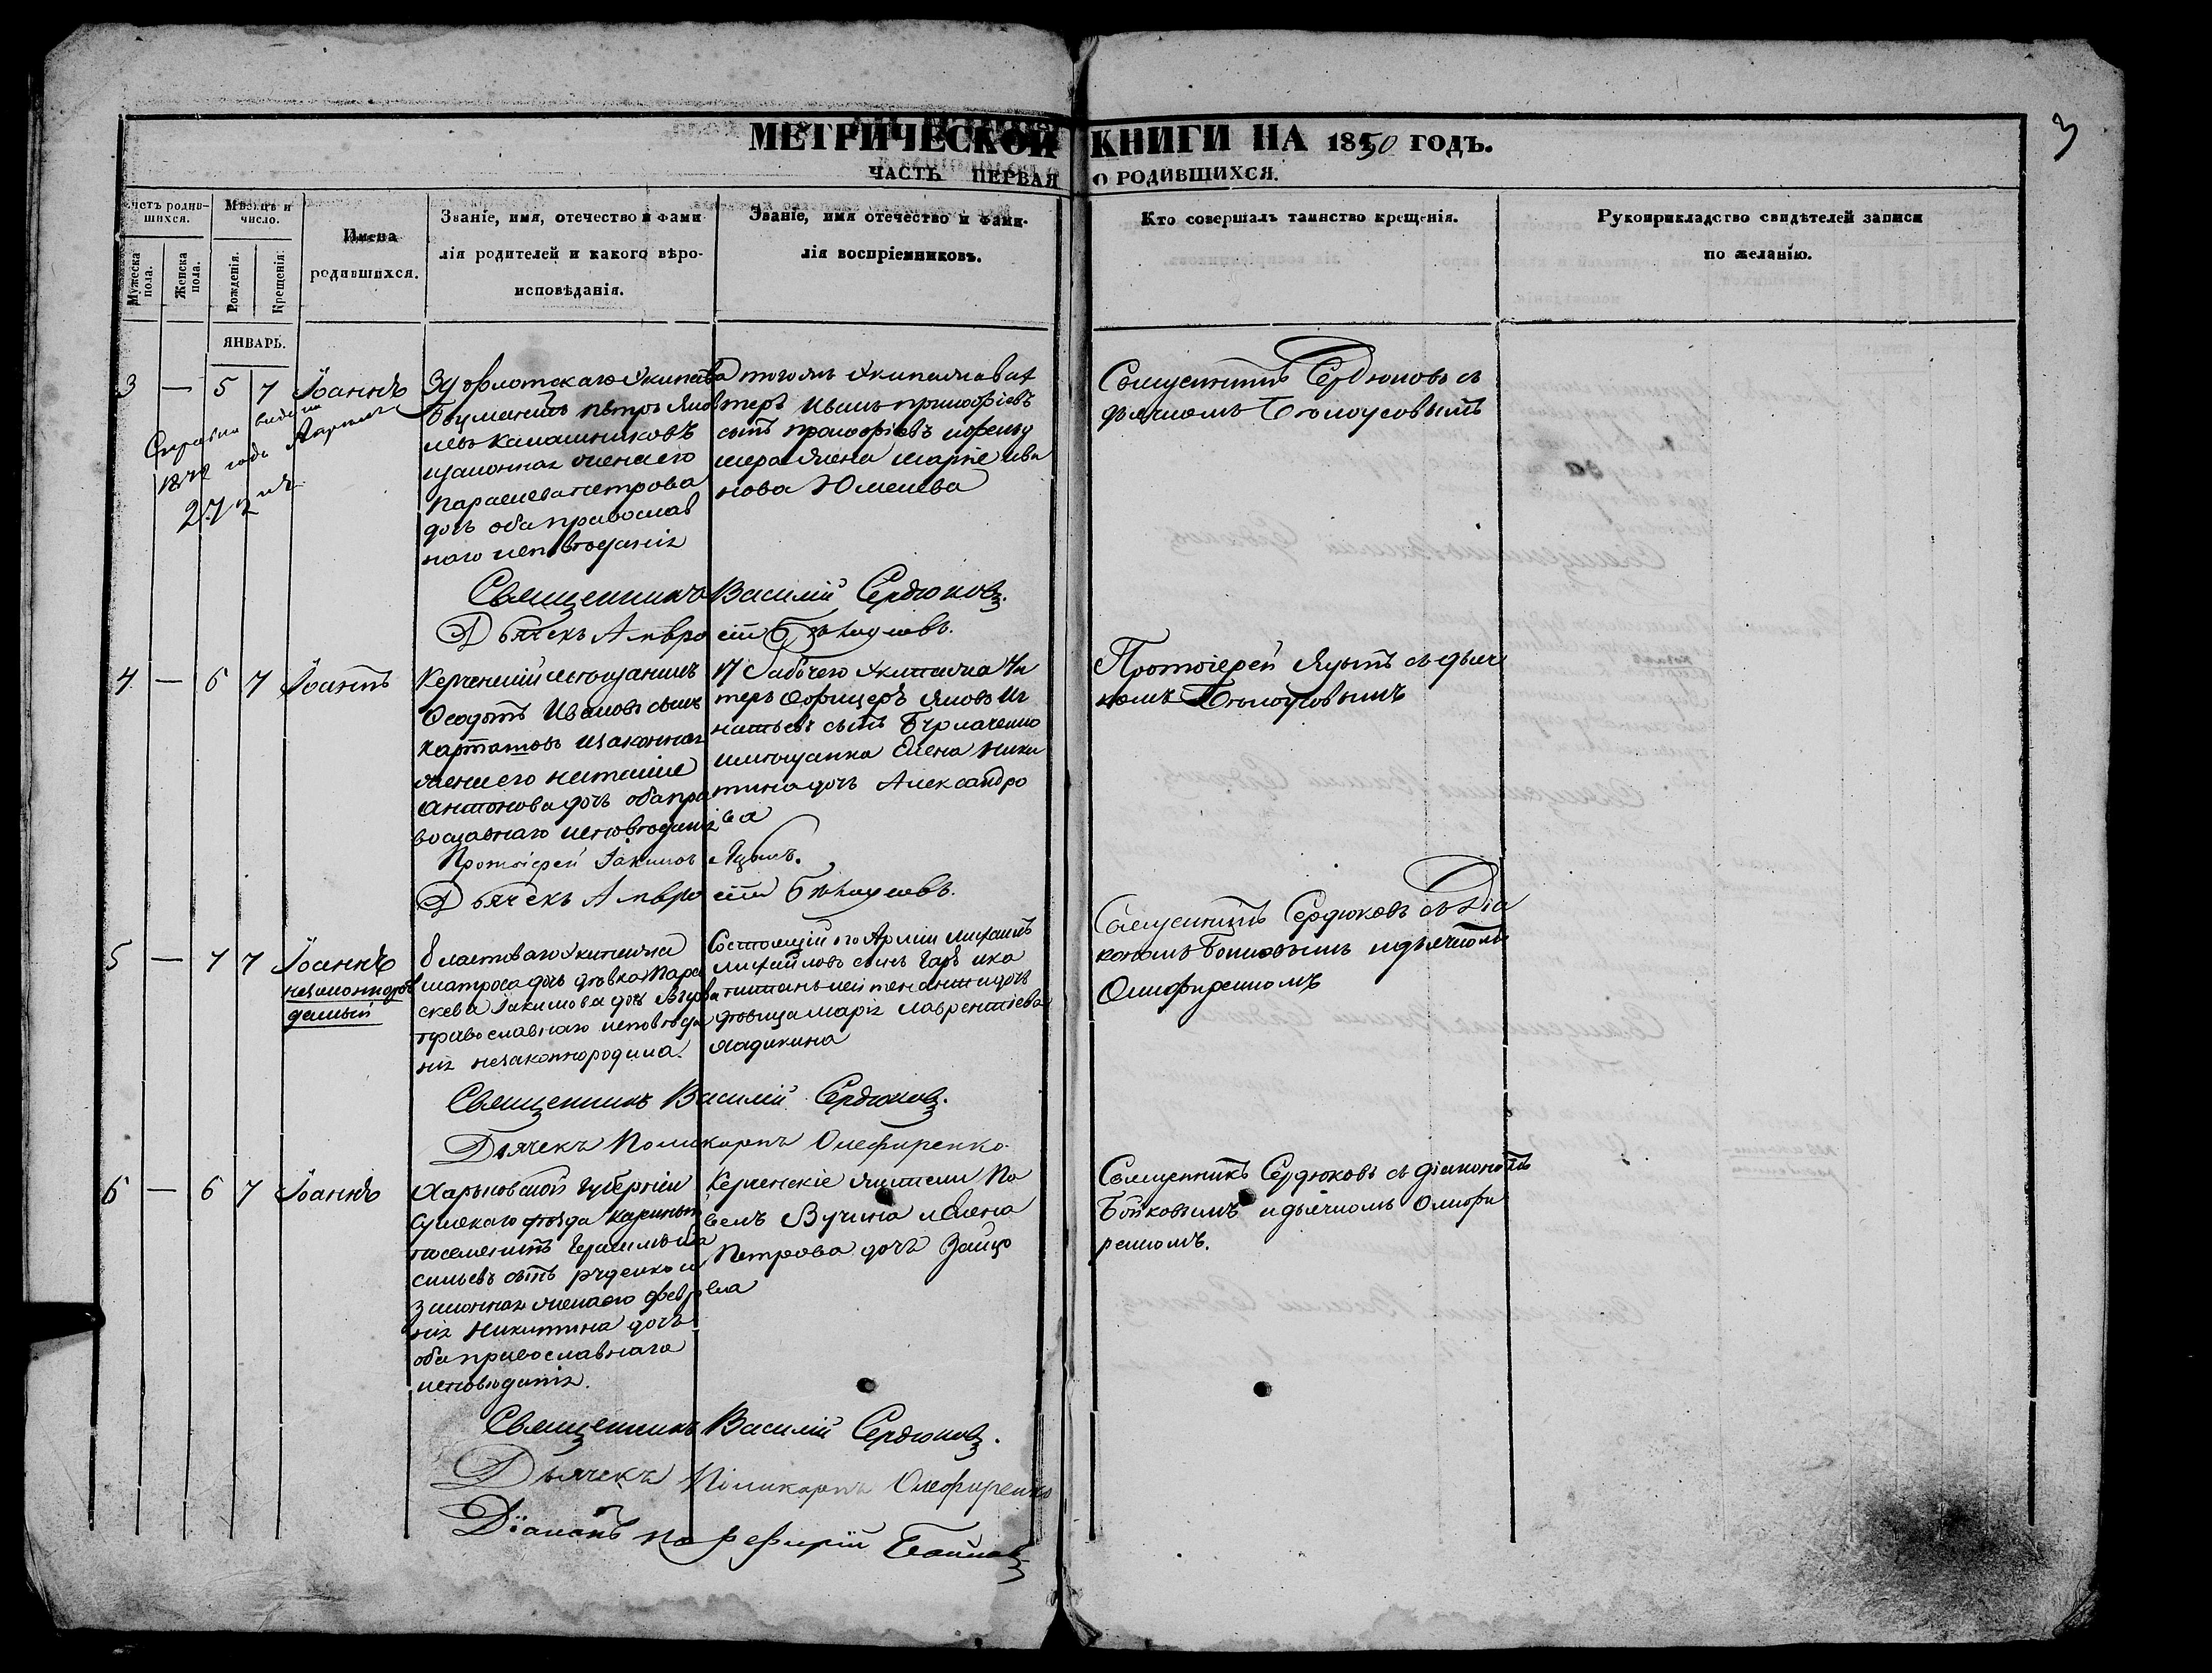 3
МЕТРИЧЕСКОЙ КНИГИ НА 1850 ГОДЪ.
ЧАСТЬ ПЕРВАЯ О РОДИВШИХСЯ.
Счетъ родив-
шихся.
Мужеска
пола.
Женска
пола.
Мѣсяцъ и
число.
Рожденія.
Крещенія.
Имена
родившихся.
Званіе, имя, отечество и фами-
лія родителей и какого вѣро-
исповѣданія.
Званіе, имя отечество и фами-
лія воспріемниковъ.
Кто совершалъ таинство крещенія.
Рукоприкладство свидѣтелей записи
по желанію.
ЯНВАРЬ.
3 — 5 7 Іоаннъ
Справка выдана
1872 года Апреля
27
34 флотскаго Экипажа
Боцманъ Петръ Яков
левъ Калашниковъ
изаконная жена его
Параскева Петрова
дочь оба православ
наго исповѣданія
тогожъ Экипажа
Иванъ Прокофіевъ
сынъ Прокофіевъ
жена Марія Ива
нова
Священникъ Сердюковъ съ
дьячкомъ Бѣлоусовымъ
Священникъ Василій Сердюковъ.
Дьячекъ Амвросій Бѣлоусовъ.
4 — 6 7 Іоаннъ
Керченскій мѣщанинъ
Феодотъ Ивановъ сынъ
изаконная
жена его Наталія
Антонова дочь оба пра
вославнаго исповѣданія
17 Рабочего Экипажа Ун
теръ Офицеръ Яковъ Иг
натьевъ сынъ Бурлаченко
имѣщанка Елена Ники
тина дочь Александро
ва
Протоіерей Яцынъ съ дьяч
комъ Бѣлоусовымъ
Протоіерей Іакимъ Яцынъ.
Дьячекъ Амвросій Бѣлоусовъ.
5 — 7 7 Іоаннъ
незаконнорож
денный
8 ластоваго Экипажа
матроса дочь дѣвка Пара
скева Іакимова дочь
православнаго исповѣда
нія незаконнородила.
Состоящій по Арміи
Михайловъ сынъ
дочь
дѣвица Марія Лаврентіева
Ладикина
Священникъ Сердюковъ съ Діа
кономъ Бойковымъ идьячкомъ
Олефиренкомъ
Священникъ Василій Сердюковъ.
Дьячекъ Поликарпъ Олефиренко
6 — 6 7 Іоаннъ
Харьковской Губерніи
Сумскаго уѣзда
поселенинъ Герасимъ Ва
сильевъ сынъ Руденко и
законная жена его Февро
нія Никитина дочь
оба православнаго
исповѣданія.
Керченскіе жители Па
велъ Вучина и Елена
Петрова дочь Зайцо
ва
Священникъ Сердюковъ съ діакономъ
Бойковымъ идьячкомъ Олефи
ренкомъ.
Священникъ Василій Сердюковъ.
Дьячекъ Поликарпъ Олефиренко
Діаконъ Порфирій Бойковъ